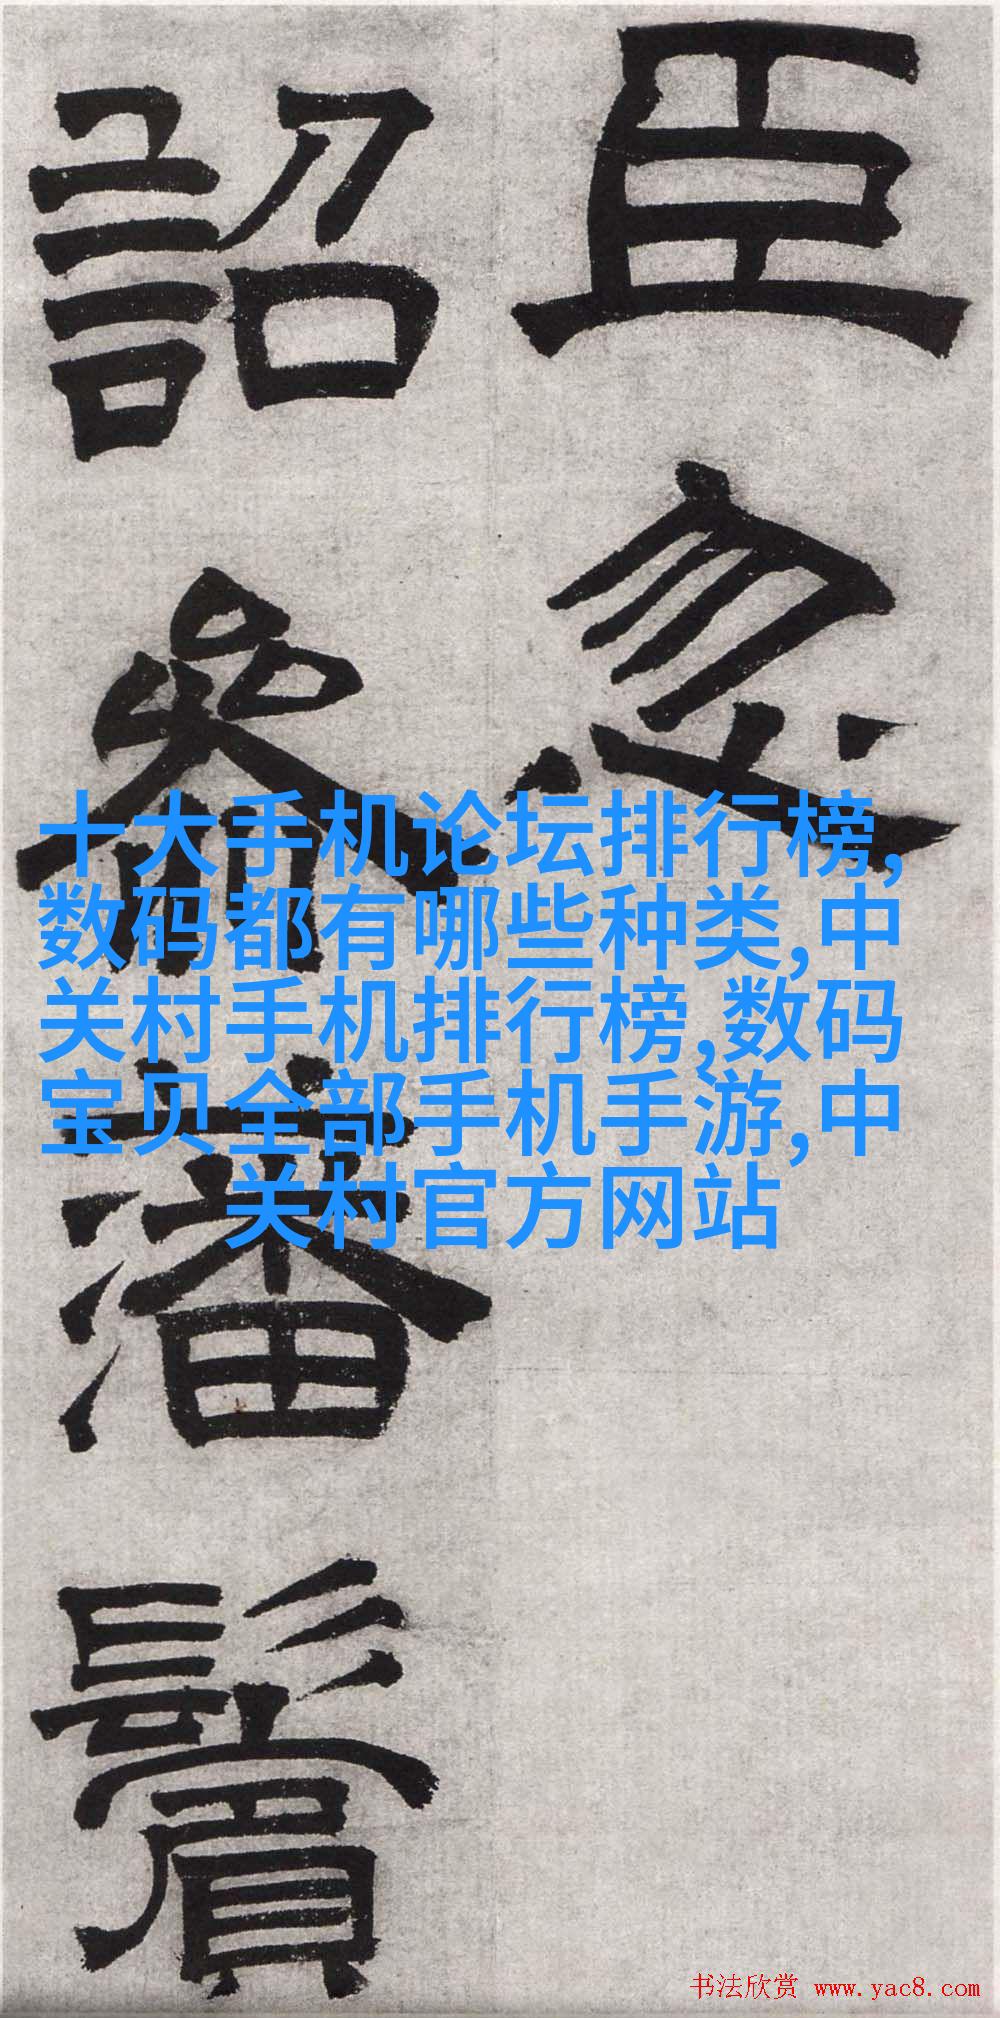 臣忽
詔參藩鬢
十大手机论坛排行榜,
数码都有哪些种类,中
关村手机排行榜,数码
宝贝全部手机手游,中
关村官方网站
书法欣赏 www.yac8.com